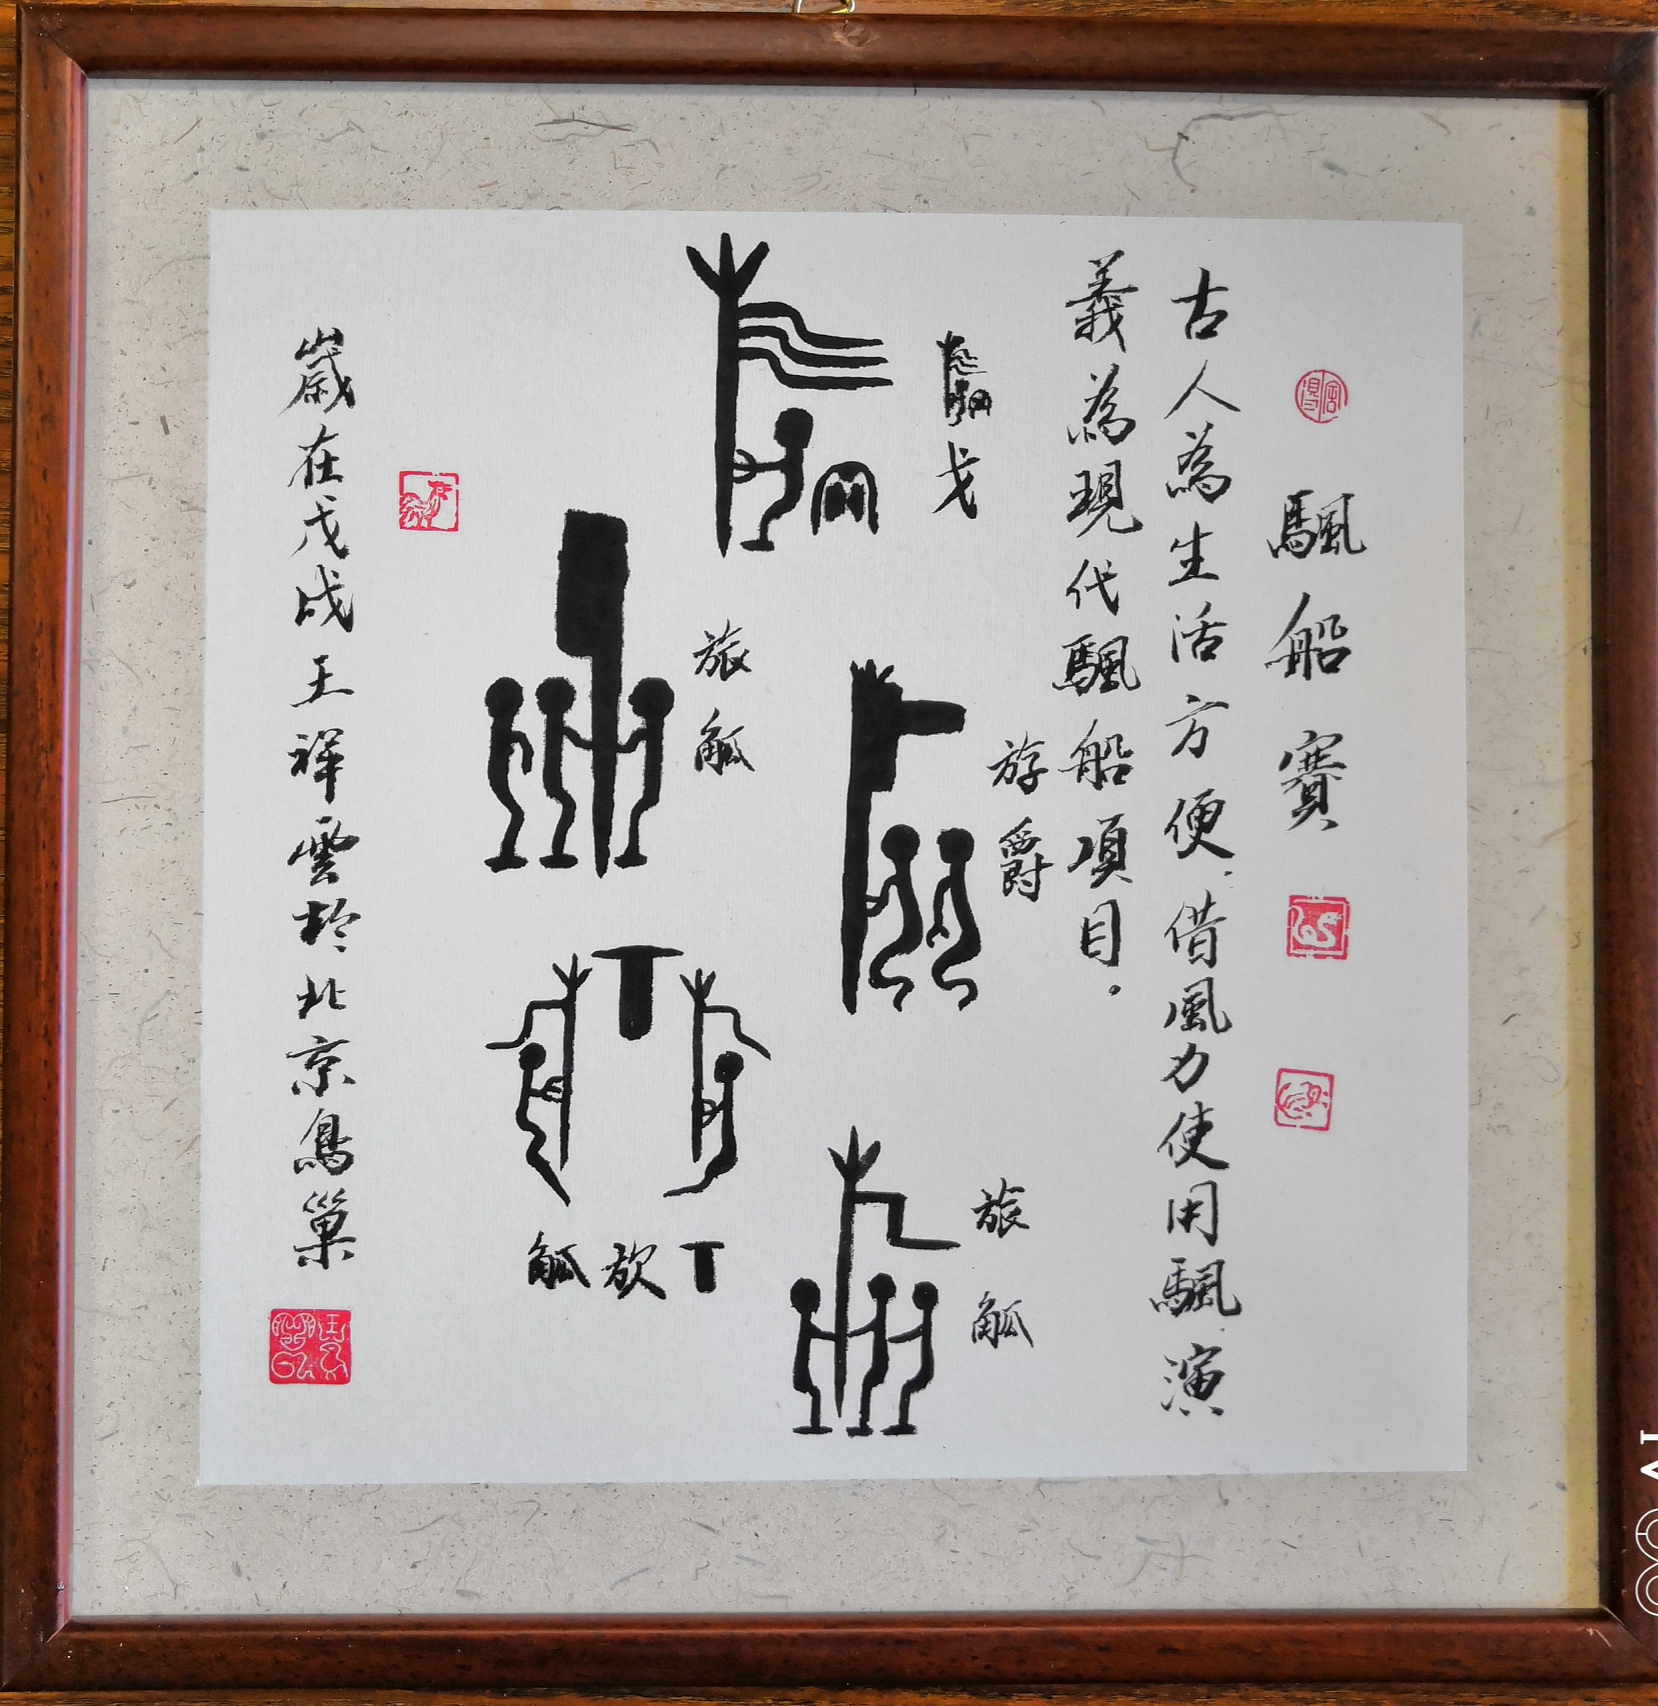 颿船賽
古人為生活方便借風力使用颿演
義為現代颿船項目.
戈
游爵
旅觚
旅觚
觚㫃丁
歲在戊戌王祥雲於北京鳥巢